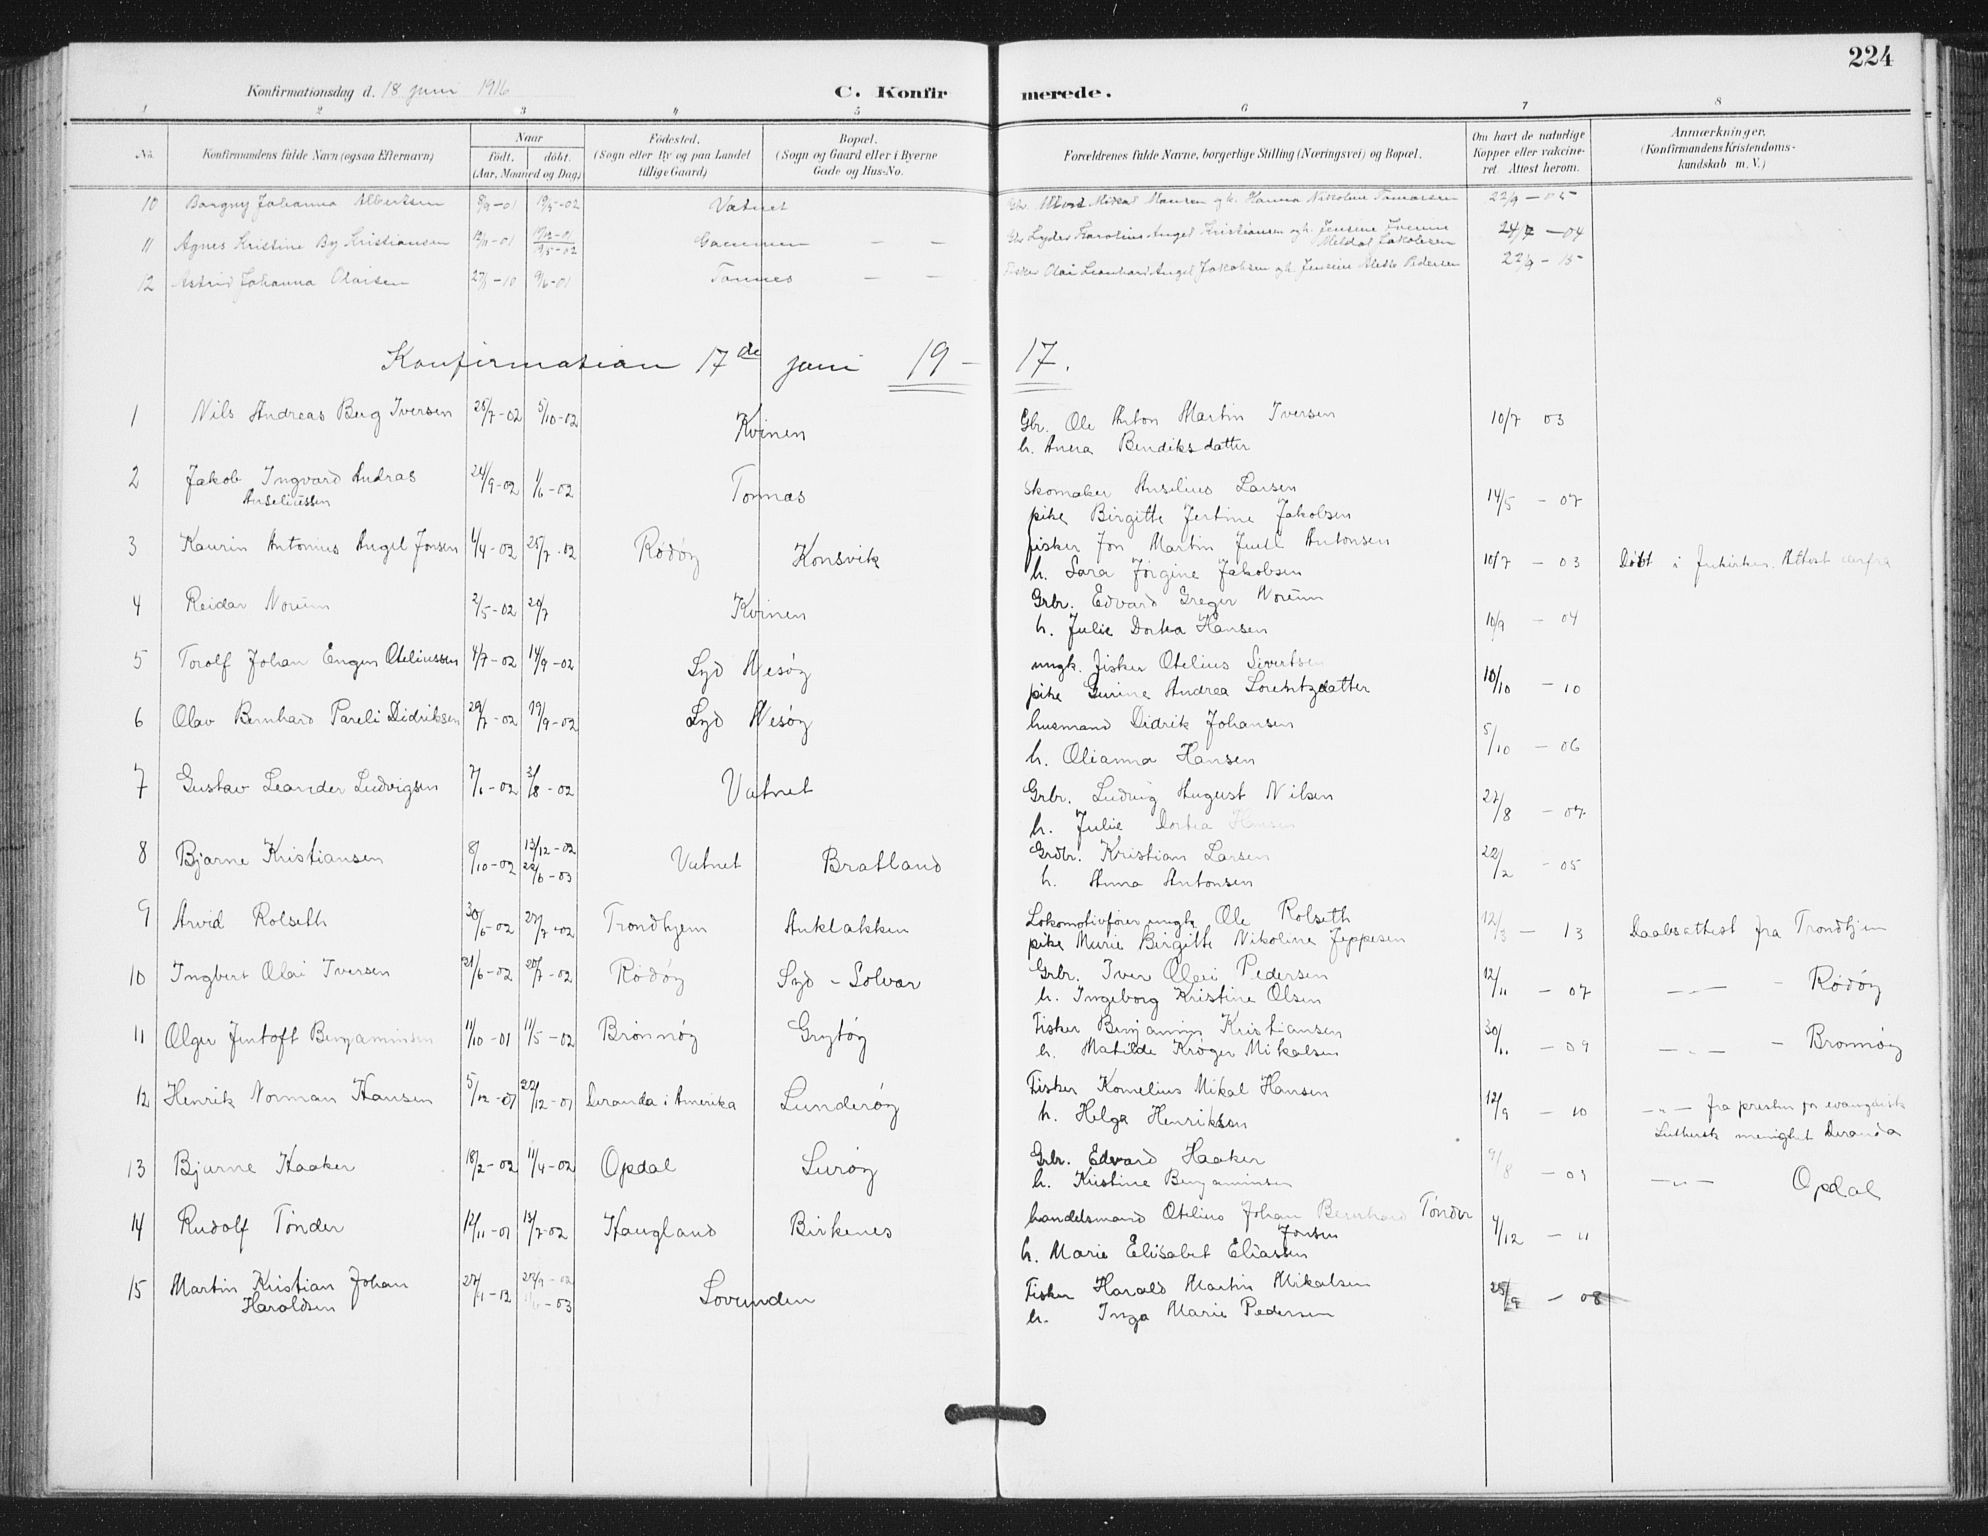 224
Konfirmationsdag d. 18 juni 1916
C. Konfirmerede.
1 2 3 4 5 6 7 8
No. Konfirmandens fulde Navn (ogsaa Efternavn) Naar født. døbt. (Aar, Maaned og Dag) Fødested. (Sogn eller By og paa Landet tillige Gaard) Bopæl. (Sogn og Gaard eller i Byerne Gade og Hus-No. Forældrenes fulde Navne, borgerlige Stilling (Næringsvei) og Bopæl. Om havt de naturlige Kopper eller vakcineret. Attest herom. Anmærkninger. (Konfirmandens Kristendomskundskab m. V.)
10 Borgny Johanna Albertsen 8/9-01 19/5-02 Vatnet Hansen og h. Hanna Nikoline 22/9-05
11 Agnes Kristine By Kristiansen Gammen — — Angel Kristiansen og h. Jensine 24/7-04
Jakobsen
12 Astrid Johanna Olaisen 9/6-01 Tonnes — — Fisker Olai Leonhard Angel Jakobsen og h. Jensine Pedersen 22/9-15
Konfirmation 17de juni 19-17.
1 Nils Andreas Berg Iversen 25/7-02 5/10-02 Kvinen Gbr. Ole Anton Martin Iversen 10/7 03
h. Anna Bendiksdatter
2 Jakob Ingvard Andras 24/9-02 1/6-02 Tonnes Skomaker Anselius Larsen 14/5-07
Anseliussen pike Birgitte Jertine Jakobsen
3 Kaurin Antonius Angel Jonsen 4/4-02 25/7-02 Rødøy Konsvik fisker Jon Martin Juell Antonsen 10/7-03 Døbt i Attest derfra
h. Sara Jørgine Jakobsen
4 Reidar Norum 2/5-02 20/7 Kvinen Grbr. Edvard Greger Norum 10/9-04
h. Julie Dortea Hansen
5 Torolf Johan Engen Oteliussen 4/7-02 14/9-02 Syd Nesøy ungk. fisker Otelius Sivertsen 10/10-10
pike Gurine Andrea Lorentzdatter
6 Olav Bernhard Pareli Didriksen 29/7-02 19/9-02 Syd Nesøy husmand Didrik Johansen 5/10-06
h. Olianna Hansen
7 Gustav Leander Ludvigsen 7/6-02 3/8-02 Vatnet Grbr. Ludvig August Nilsen 27/8-07
h. Julie Dortea Hansen
8 Bjarne Kristiansen 8/10-02 13/12-02 22/6-03 Vatnet Bratland Grdbr. Kristian Larsen 22/2-05
h. Anna Antonsen
9 Arvid Rolseth 30/5-02 27/7-02 Trondhjem Auklakken Lokomotivfører ungk. Ole Rolseth 12/3-13 Daabsattest fra Trondhjem
pike Marie Birgitte Nikoline Jeppesen
10 Ingbert Olai Iversen 21/6-02 20/7-02 Rødøy Syd-Solvær Grbr. Iver Olai Pedersen 12/11-07 —„— - Rødøy
h. Ingeborg Kristine Olsen
11 Olger Jentoft Benjaminsen 11/10-01 11/5-02 Brønnøy Grytøy Fisker Benjamin Kristiansen 30/11-09 —„— - Brønnøy
h. Mathilde Krøger Mikalsen
12 Henrik Norman Hansen 5/12-01 22/12-01 Deranda i Amerika Lunderøy Fisker Kornelius Mikal Hansen 12/9-10 —„— fra presten for evangelisk
h. Helga Henriksen Luthersk menighet Deranda
13 Bjarne Haaker 18/2-02 11/4-02 Opdal Lurøy Grbr. Edvard Haaker 9/8-03 —„— Opdal
h. Kristine Benjaminsen
14 Rudolf Tønder 12/11-01 13/7-02 Haugland Birkenes handelsmand Otelius Johan Bernhard Tønder 4/12-11
Jonsen
h. Marie Elisabet Eliassen
15 Martin Kristian Johan Lovunden Fisker Harald Martin Mikalsen 25/9-08
Haraldsen h. Inga Marie Pedersen